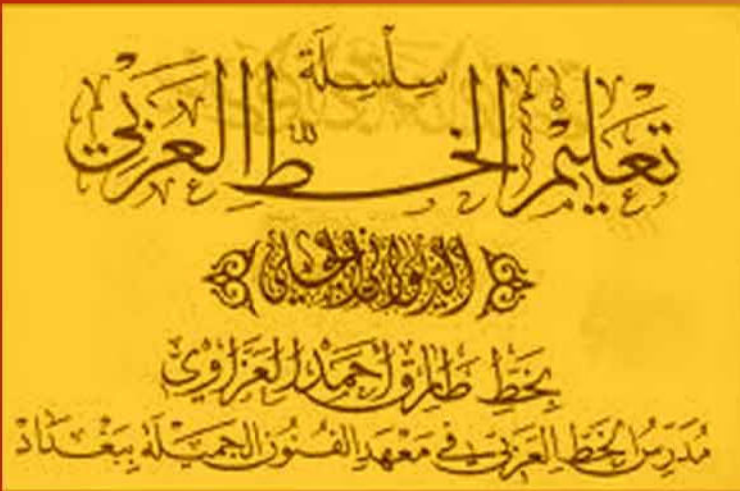 سلسلة
تعليم الخط العربي
الديواني والجلي
بخط طارق أحمد العزاوي
مدرس الخط العربي في معهد الفنون الجميلة ببغداد